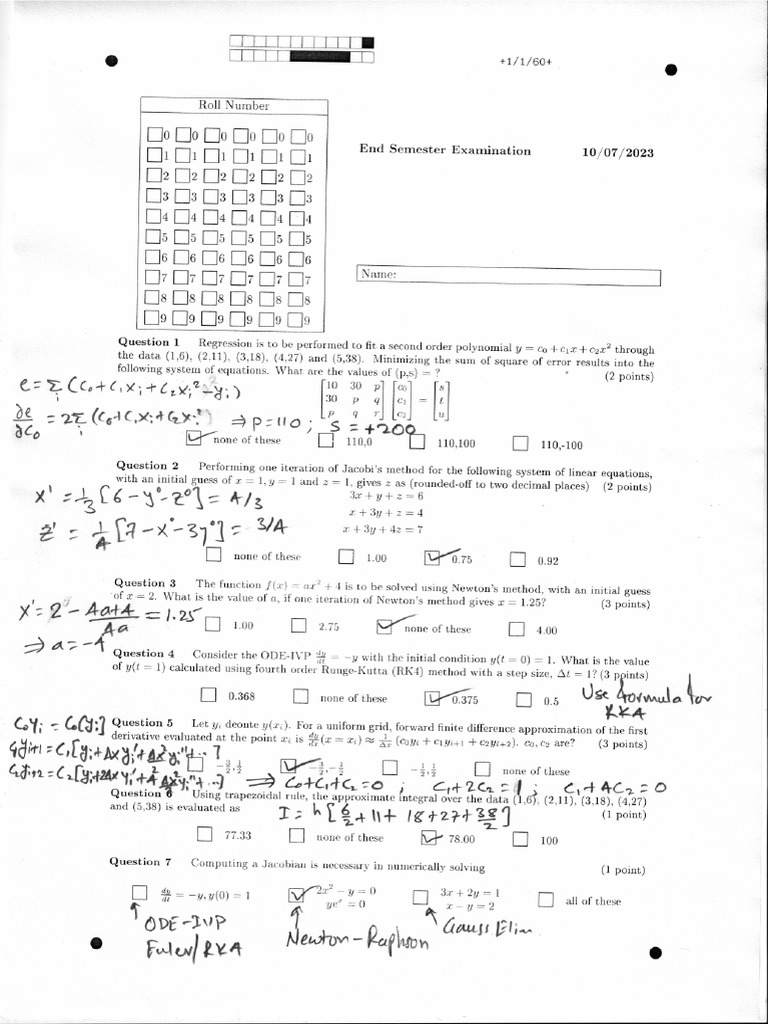 +1/1/60+
Roll Number
0 0 0 0 0 0
1 1 1 1 1 1
2 2 2 2 2 2
3 3 3 3 3 3
4 4 4 4 4 4
5 5 5 5 5 5
6 6 6 6 6 6
7 7 7 7 7 7
8 8 8 8 8 8
9 9 9 9 9 9
End Semester Examination 10/07/2023
Name:
Question 1 Regression is to be performed to fit a second order polynomial y = c₀ + c₁x + c₂x² through
the data (1,6), (2,11), (3,18), (4,27) and (5,38). Minimizing the sum of square of error results into the
following system of equations. What are the values of (p,s) = ? (2 points)
e = Σᵢ (c₀+c₁xᵢ+c₂xᵢ²-yᵢ)
[10 30 p] [c₀] [s]
[30 p q] [c₁] = [t]
[p q r] [c₂] [u]
∂e/∂c₀ = 2Σᵢ (c₀+c₁xᵢ+c₂xᵢ² ⇒ p=110 ; s = +200
none of these 110,0 110,100 110,-100
Question 2 Performing one iteration of Jacobi's method for the following system of linear equations,
with an initial guess of x = 1, y = 1 and z = 1, gives z as (rounded-off to two decimal places) (2 points)
x' = 1/3 [6-y°-z°] = 4/3
3x + y + z = 6
x + 3y + z = 4
z' = 1/4 [7-x°-3y°] = 3/4
x + 3y + 4z = 7
none of these 1.00 0.75 0.92
Question 3 The function f(x) = ax² + 4 is to be solved using Newton's method, with an initial guess
of x = 2. What is the value of a, if one iteration of Newton's method gives x = 1.25? (3 points)
x' = 2 - (4a+4)/4a = 1.25
1.00 2.75 none of these 4.00
⇒ a=-4
Question 4 Consider the ODE-IVP dy/dt = -y with the initial condition y(t = 0) = 1. What is the value
of y(t = 1) calculated using fourth order Runge-Kutta (RK4) method with a step size, Δt = 1? (3 points)
0.368 none of these 0.375 0.5
Use formula for
RK4
c₀yᵢ = c₀[yᵢ]
Question 5 Let yᵢ deonte y(xᵢ). For a uniform grid, forward finite difference approximation of the first
derivative evaluated at the point xᵢ is dy/dx (x = xᵢ) ≈ 1/Δx (c₀yᵢ + c₁yᵢ₊₁ + c₂yᵢ₊₂). c₀, c₂ are? (3 points)
c₁yᵢ₊₁ = c₁[yᵢ+Δxyᵢ'+Δx²/2 yᵢ''+..]
-3/2, 1/2 -3/2, -1/2 -1/2, 1/2 none of these
c₂yᵢ₊₂ = c₂[yᵢ+2Δxyᵢ'+4Δx²/2 yᵢ''+..] ⇒ c₀+c₁+c₂=0 ; c₁+2c₂=1 ; c₁+4c₂=0
Question 6 Using trapezoidal rule, the approximate integral over the data (1,6), (2,11), (3,18), (4,27)
and (5,38) is evaluated as (1 point)
I = h [6/2+11+18+27+38/2]
77.33 none of these 78.00 100
Question 7 Computing a Jacobian is necessary in numerically solving (1 point)
dy/dt = -y, y(0) = 1
2x² - y = 0
yeˣ = 0
3x + 2y = 1
x - y = 2
all of these
ODE-IVP
Euler/RK4
Newton-Raphson
Gauss Elim